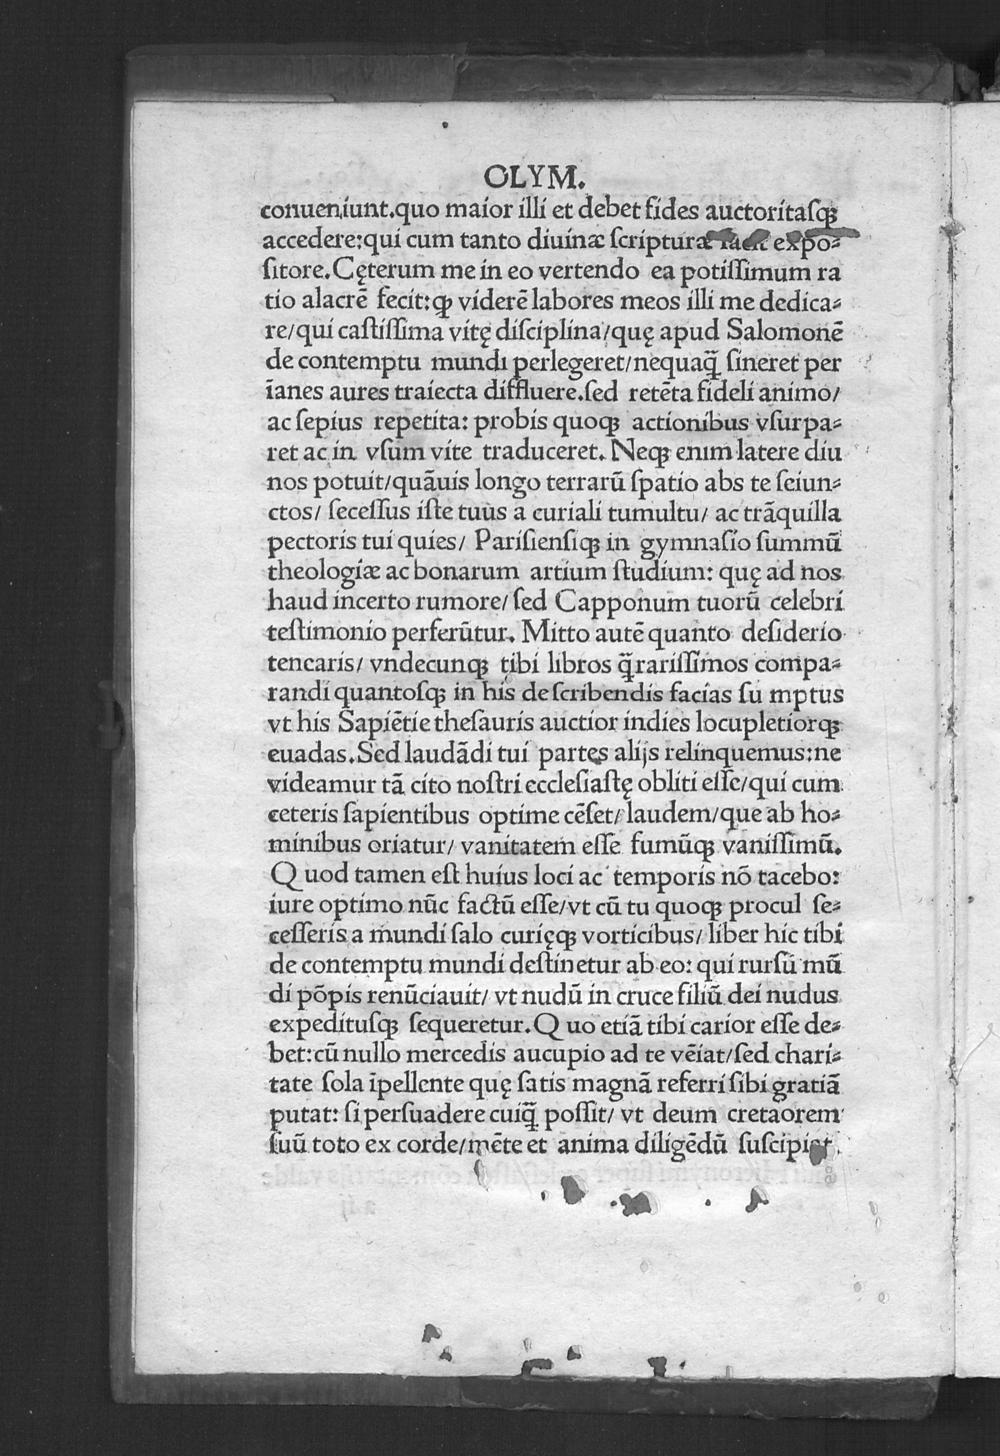 OLYM.
conueniunt.quo maior illi et debet fides auctoritaſqꝫ
accedere:qui cum tanto diuinæ ſcripturæ expo⸗
ſitore.Cęterum me in eo vertendo ea potiſſimum ra
tio alacrē fecit:ꝙ viderē labores meos illi me dedica⸗
re/qui caſtiſſima vitę diſciplina/quę apud Salomonē
de contemptu mundi perlegeret/nequaq̃ ſineret per
īanes aures traiecta diffluere.ſed retēta fideli animo/
ac ſepius repetita: probis quoqꝫ actionibus vſurpa⸗
ret ac in vſum vite traduceret. Neqꝫ enim latere diu
nos potuit/quāuis longo terrarū ſpatio abs te ſeiun⸗
ctos/ ſeceſſus iſte tuus a curiali tumultu/ ac trāquilla
pectoris tui quies/ Pariſienſiqꝫ in gymnaſio ſummū
theologiæ ac bonarum artium ſtudium: quę ad nos
haud incerto rumore/ ſed Capponum tuorū celebri
teſtimonio perferūtur. Mitto autē quanto deſiderio
tencaris/ vndecunqꝫ tibi libros q̃rariſſimos compa⸗
randi quantoſqꝫ in his de ſcribendis facias ſu mptus
vt his Sapiētie theſauris auctior indies locupletiorqꝫ
euadas.Sed laudādi tui partes alijs relinquemus:ne
videamur tā cito noſtri eccleſiaſtę obliti eſſe/qui cum
ceteris ſapientibus optime cēſet/laudem/que ab ho⸗
minibus oriatur/ vanitatem eſſe fumūqꝫ vaniſſimū.
Q uod tamen eſt huius loci ac temporis nō tacebo:
iure optimo nūc factū eſſe/vt cū tu quoqꝫ procul ſe⸗
ceſſeris a mundi ſalo curięqꝫ vorticibus/ liber hic tibi
de contemptu mundi deſtinetur ab eo: qui rurſū mū
di pōpis renūciauit/ vt nudū in cruce filiū dei nudus
expedituſqꝫ ſequeretur.Q uo etiā tibi carior eſſe de⸗
bet:cū nullo mercedis aucupio ad te vēiat/ſed chari⸗
tate ſola īpellente quę ſatis magnā referri ſibi gratiā
putat: ſi perſuadere cuiq̃ poſſit/ vt deum cretaorem
ſuū toto ex corde/mēte et anima diligēdū ſuſcipiat.